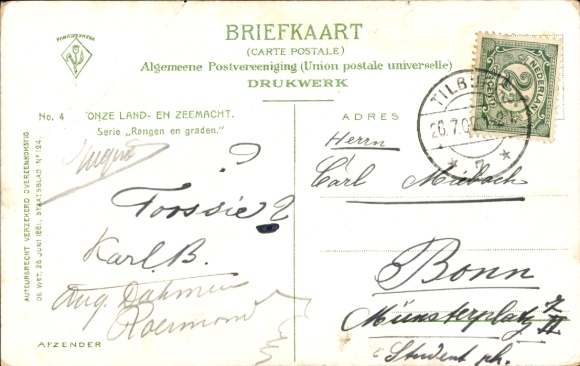 FABRIEKSMERK
BRIEFKAART
(CARTE POSTALE)
Algemeene Postvereeniging (Union postale universelle)
DRUKWERK
No. 4 ONZE LAND- EN ZEEMACHT.
Serie „Rangen en graden."
AUTEURSRECHT VERZEKERD OVEREENKOMSTIG
DE WET, 28 JUNI 1881, STAATSBLAD No 124
?
Toossie?
Karl. B.
Aug. Dahmen
Roermond
AFZENDER
NEDERLAND
2½
TILBURG
20.7.0
7
ADRES
Herrn
Carl Miebach
Bonn
Münsterplatz
II
Student ph.